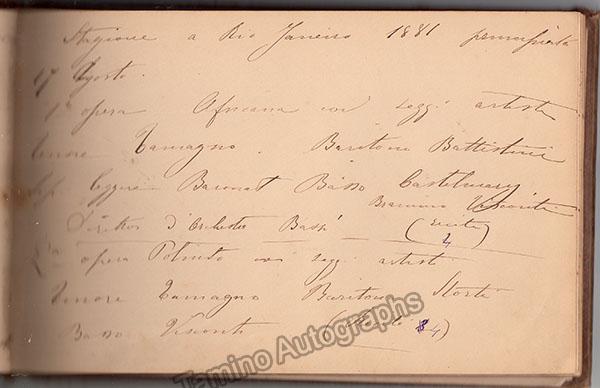 Stagione a Rio Janeiro 1881 principiata
17 Agosto.
1ª opera Africana coi seggti artisti
tenore Tamagno. Baritono Battistini
leggero Baronat Basso Castelmary
Visconti
Direttore d'Orchestra Bassi (Recite
4)
2ª opera Poliuto coi segg. artisti
Tenore Tamagno Baritono Storti
Basso Visconti (Recite 4)
Tamino Autographs